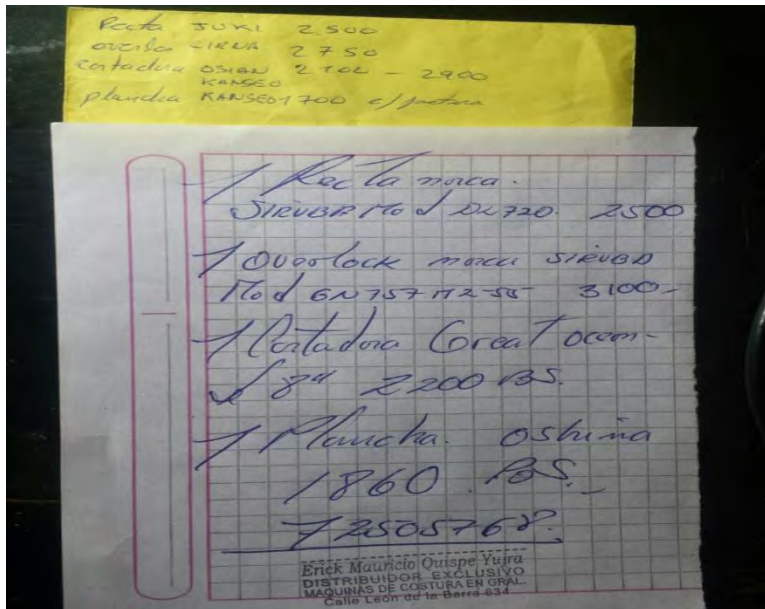 Recta JUKI 2500
overlo SIRUBA 2750
cortadora OSIAN 2100 - 2900
KANSEO
plancha KANSEO 1700 c/ factura
1 Recta marca.
SIRUBA Mod DL720. 2500
1 Overlock marca SIRUBA
Mod 6N757M2-55 3100-
1 Cortadora Great ocean-
de 8" 2200 BS.
1 Plancha. oshima
1860 BS.-
72505768.
Erick Mauricio Quispe Yujra
DISTRIBUIDOR EXCLUSIVO
MAQUINAS DE COSTURA EN GRAL.
Calle León de la Barra 634